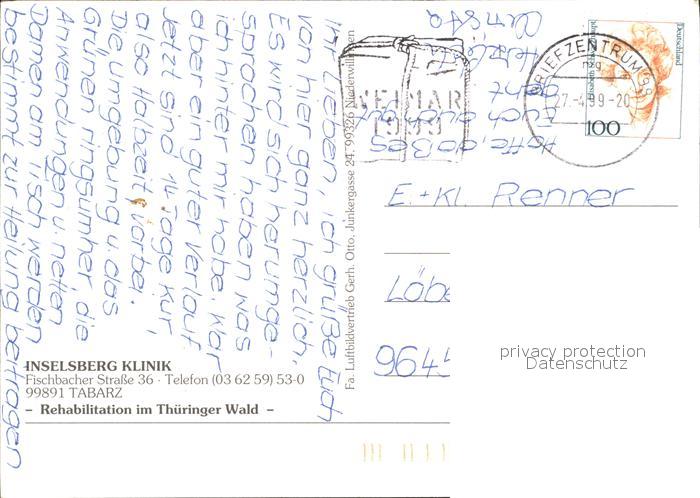 Ihr Lieben, ich grüße Euch
von hier ganz herzlich,
Es wird sich herumge-
sprochen haben was
ich mir habe. War
aber ein guter Verlauf
Jetzt sind 14 Tage Kur,
also Halbzeit, vorbei.
Die Umgebung u. das
Grünen ringsumher, die
Anwendungen u. netten
Damen am Tisch werden
bestimmt zur Heilung beitragen
Hoffe, daß es
Euch auch
geht
Herzl.
Christa
INSELSBERG KLINIK
Fischbacher Straße 36 · Telefon (03 62 59) 53-0
99891 TABARZ
– Rehabilitation im Thüringer Wald –
Fa. Luftbildvertrieb Gerh. Otto, Junkergasse 24, 99326 Niederwillingen
WEIMAR
1999
BRIEFZENTRUM 99
mg
27.-4.99-20
Deutschland
100
E. + Kl. Renner
Löbe
9645
privacy protection
Datenschutz